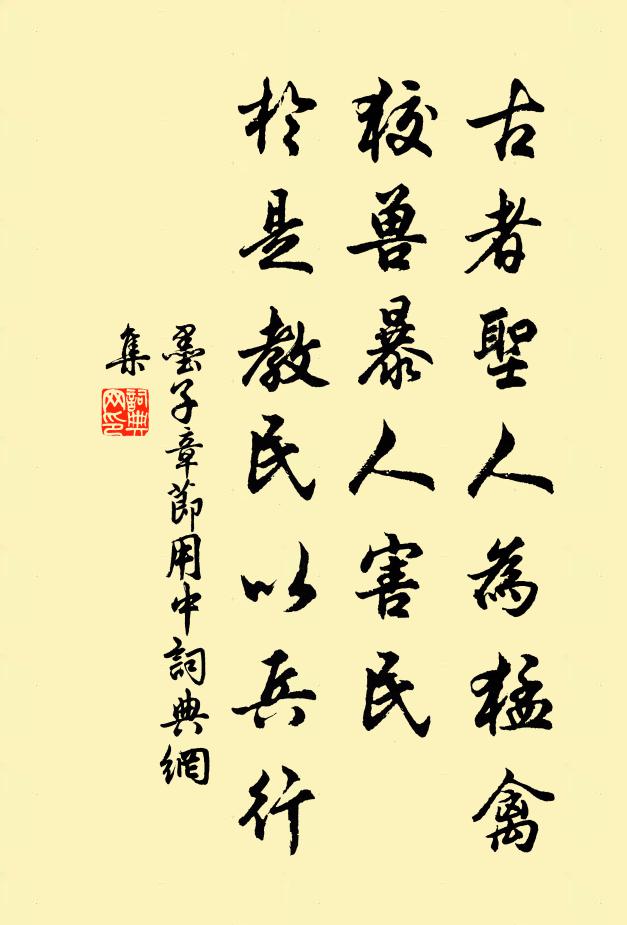 古者聖人為猛禽
狡兽暴人害民
於是教民以兵行
墨子章節用中詞典網
集
詞典
网印